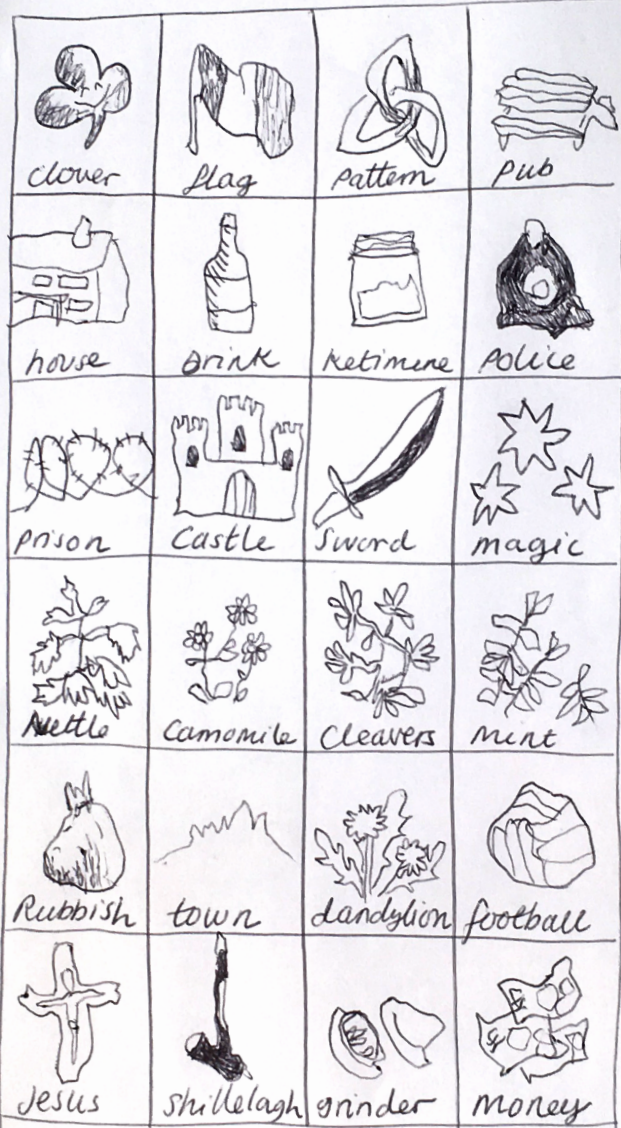 Clover flag pattern pub
house Drink Ketimine Police
prison Castle Sword magic
Nettle Camomile Cleavers Mint
Rubbish town dandylion football
Jesus Shillelagh grinder money